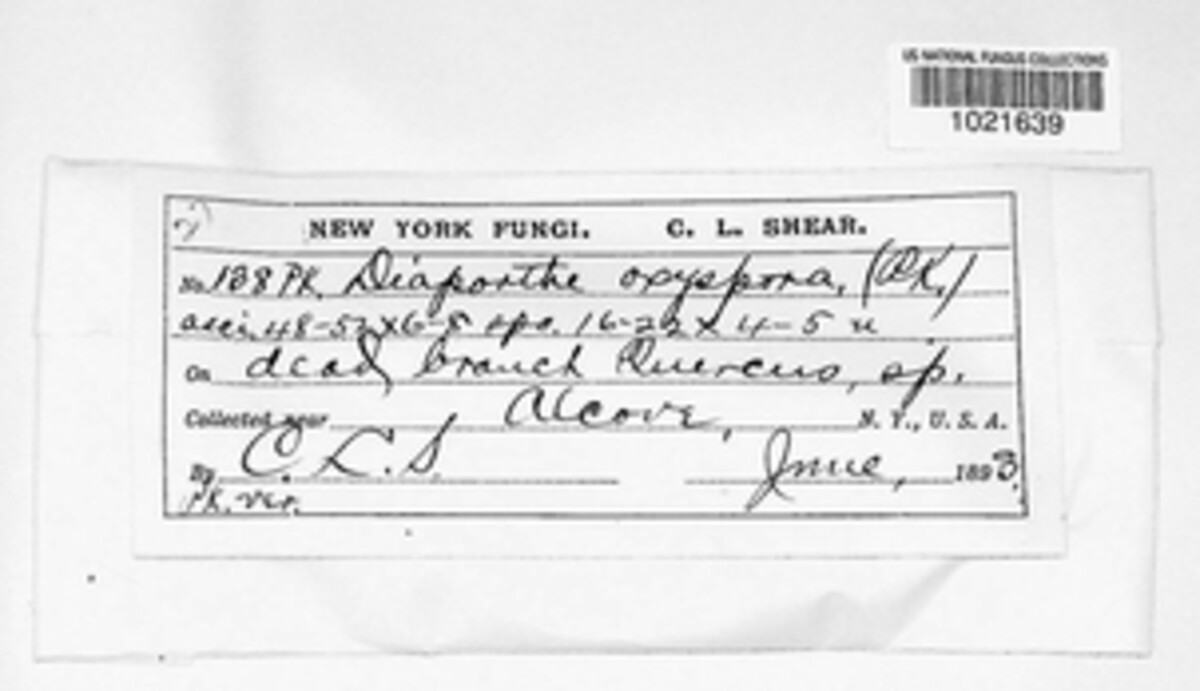 US NATIONAL FUNGUS COLLECTIONS
1021639
NEW YORK FUNGI. C. L. SHEAR.
No. 138 Pk. Diaporthe oxyspora, (Pk.)
asci. 48-52×6-8 sps. 16-22 × 4-5 u
On dead branch Quercus, sp.
Collected near Alcove, N. Y., U. S. A.
By C. L. S. June, 1893.
Pk. ver.